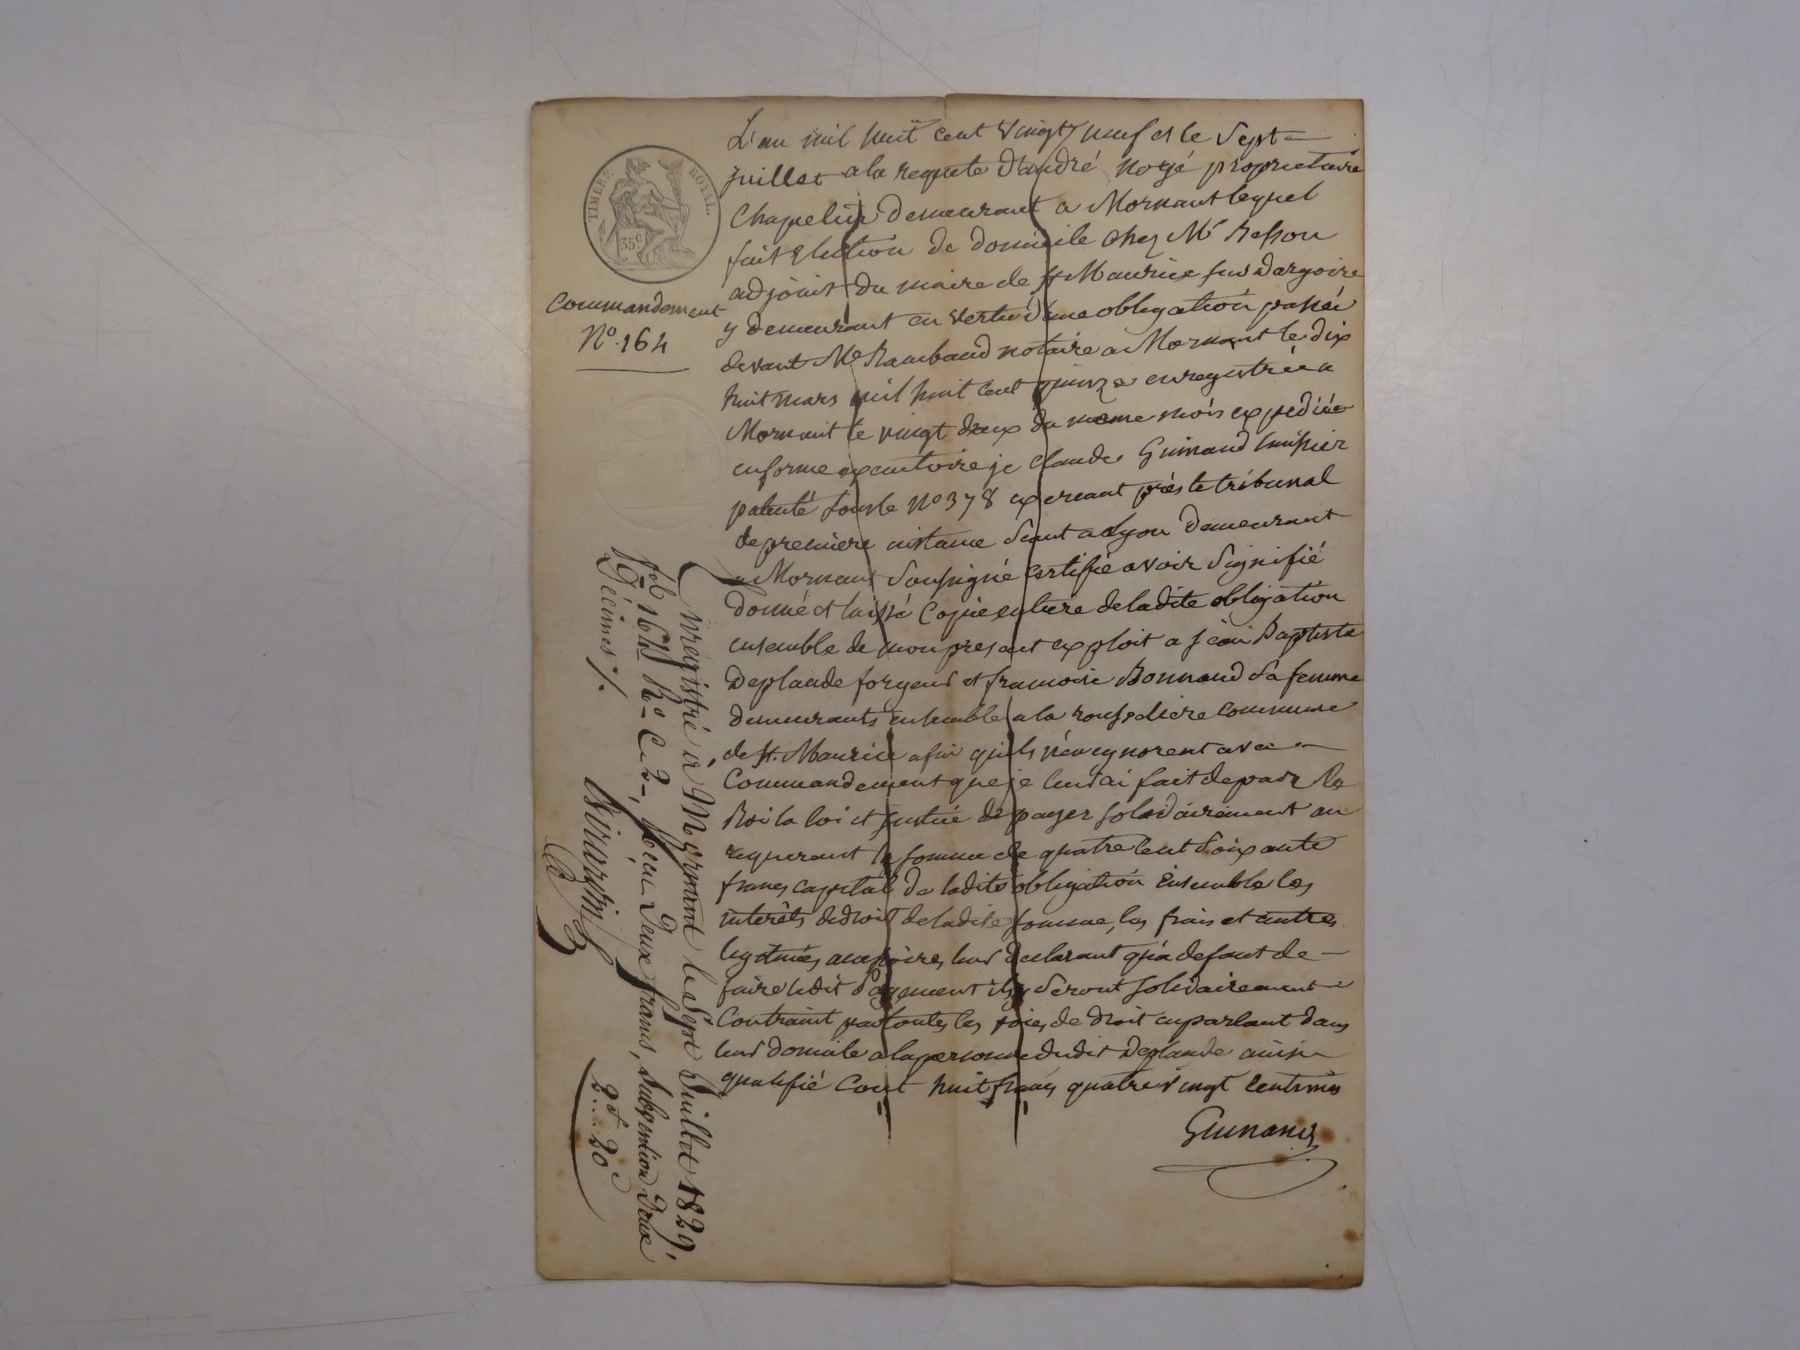 TIMBRE ROYAL.
35c
Commandement
No. 164
L'an mil huit cent vingt neuf et le Sept
juillet a la requete d'andré noyé proprietaire
Chapelier demeurant a Mornant lequel
fait Election de domicile chez Mr Besson
adjoint du maire de St Maurice sur dargoire
y demeurant en vertu d'une obligation passée
devant Me Rambaud notaire a Mornant le dix
huit mars mil huit cent quinze enregistrée a
Mornant le vingt deux du meme mois expediée
en forme executoire je Claude Guinand huissier
patenté sous le No 378 exercant près le tribunal
de premiere instance Séant a Lyon demeurant
a Mornant Soussigné Certifie avoir Signifié
donné et laissé Copie entiere de ladite obligation
ensemble de mon present exploit a jean Baptiste
Deplaude forgeur et francoise Bonnand Sa femme
demeurants ensemble a la commune
de St. Maurice afin qu'ils n'en ignorent avec
Commandement que je leur ai fait de par le
Roi la loi et justice de payer solidairement au
requerant la somme de quatre cent soixante
francs capital de ladite obligation Ensemble les
interêts de droit de ladite somme, les frais et autres
legitimes accessoires, leur declarant qu'a defaut de
faire ledit Payement ils y Seront solidairement
Contraint par toutes les voies de droit en parlant dans
leur domicile a la personne dudit Deplaude ainsi
qualifié Cout huit francs quatre vingt Centimes
Guinand
Enregistré à Mornant le Sept Juillet 1829,
fol. 16 Ro C. 2, reçu Deux francs, Subvention Deux
Décimes %.
2f 20c